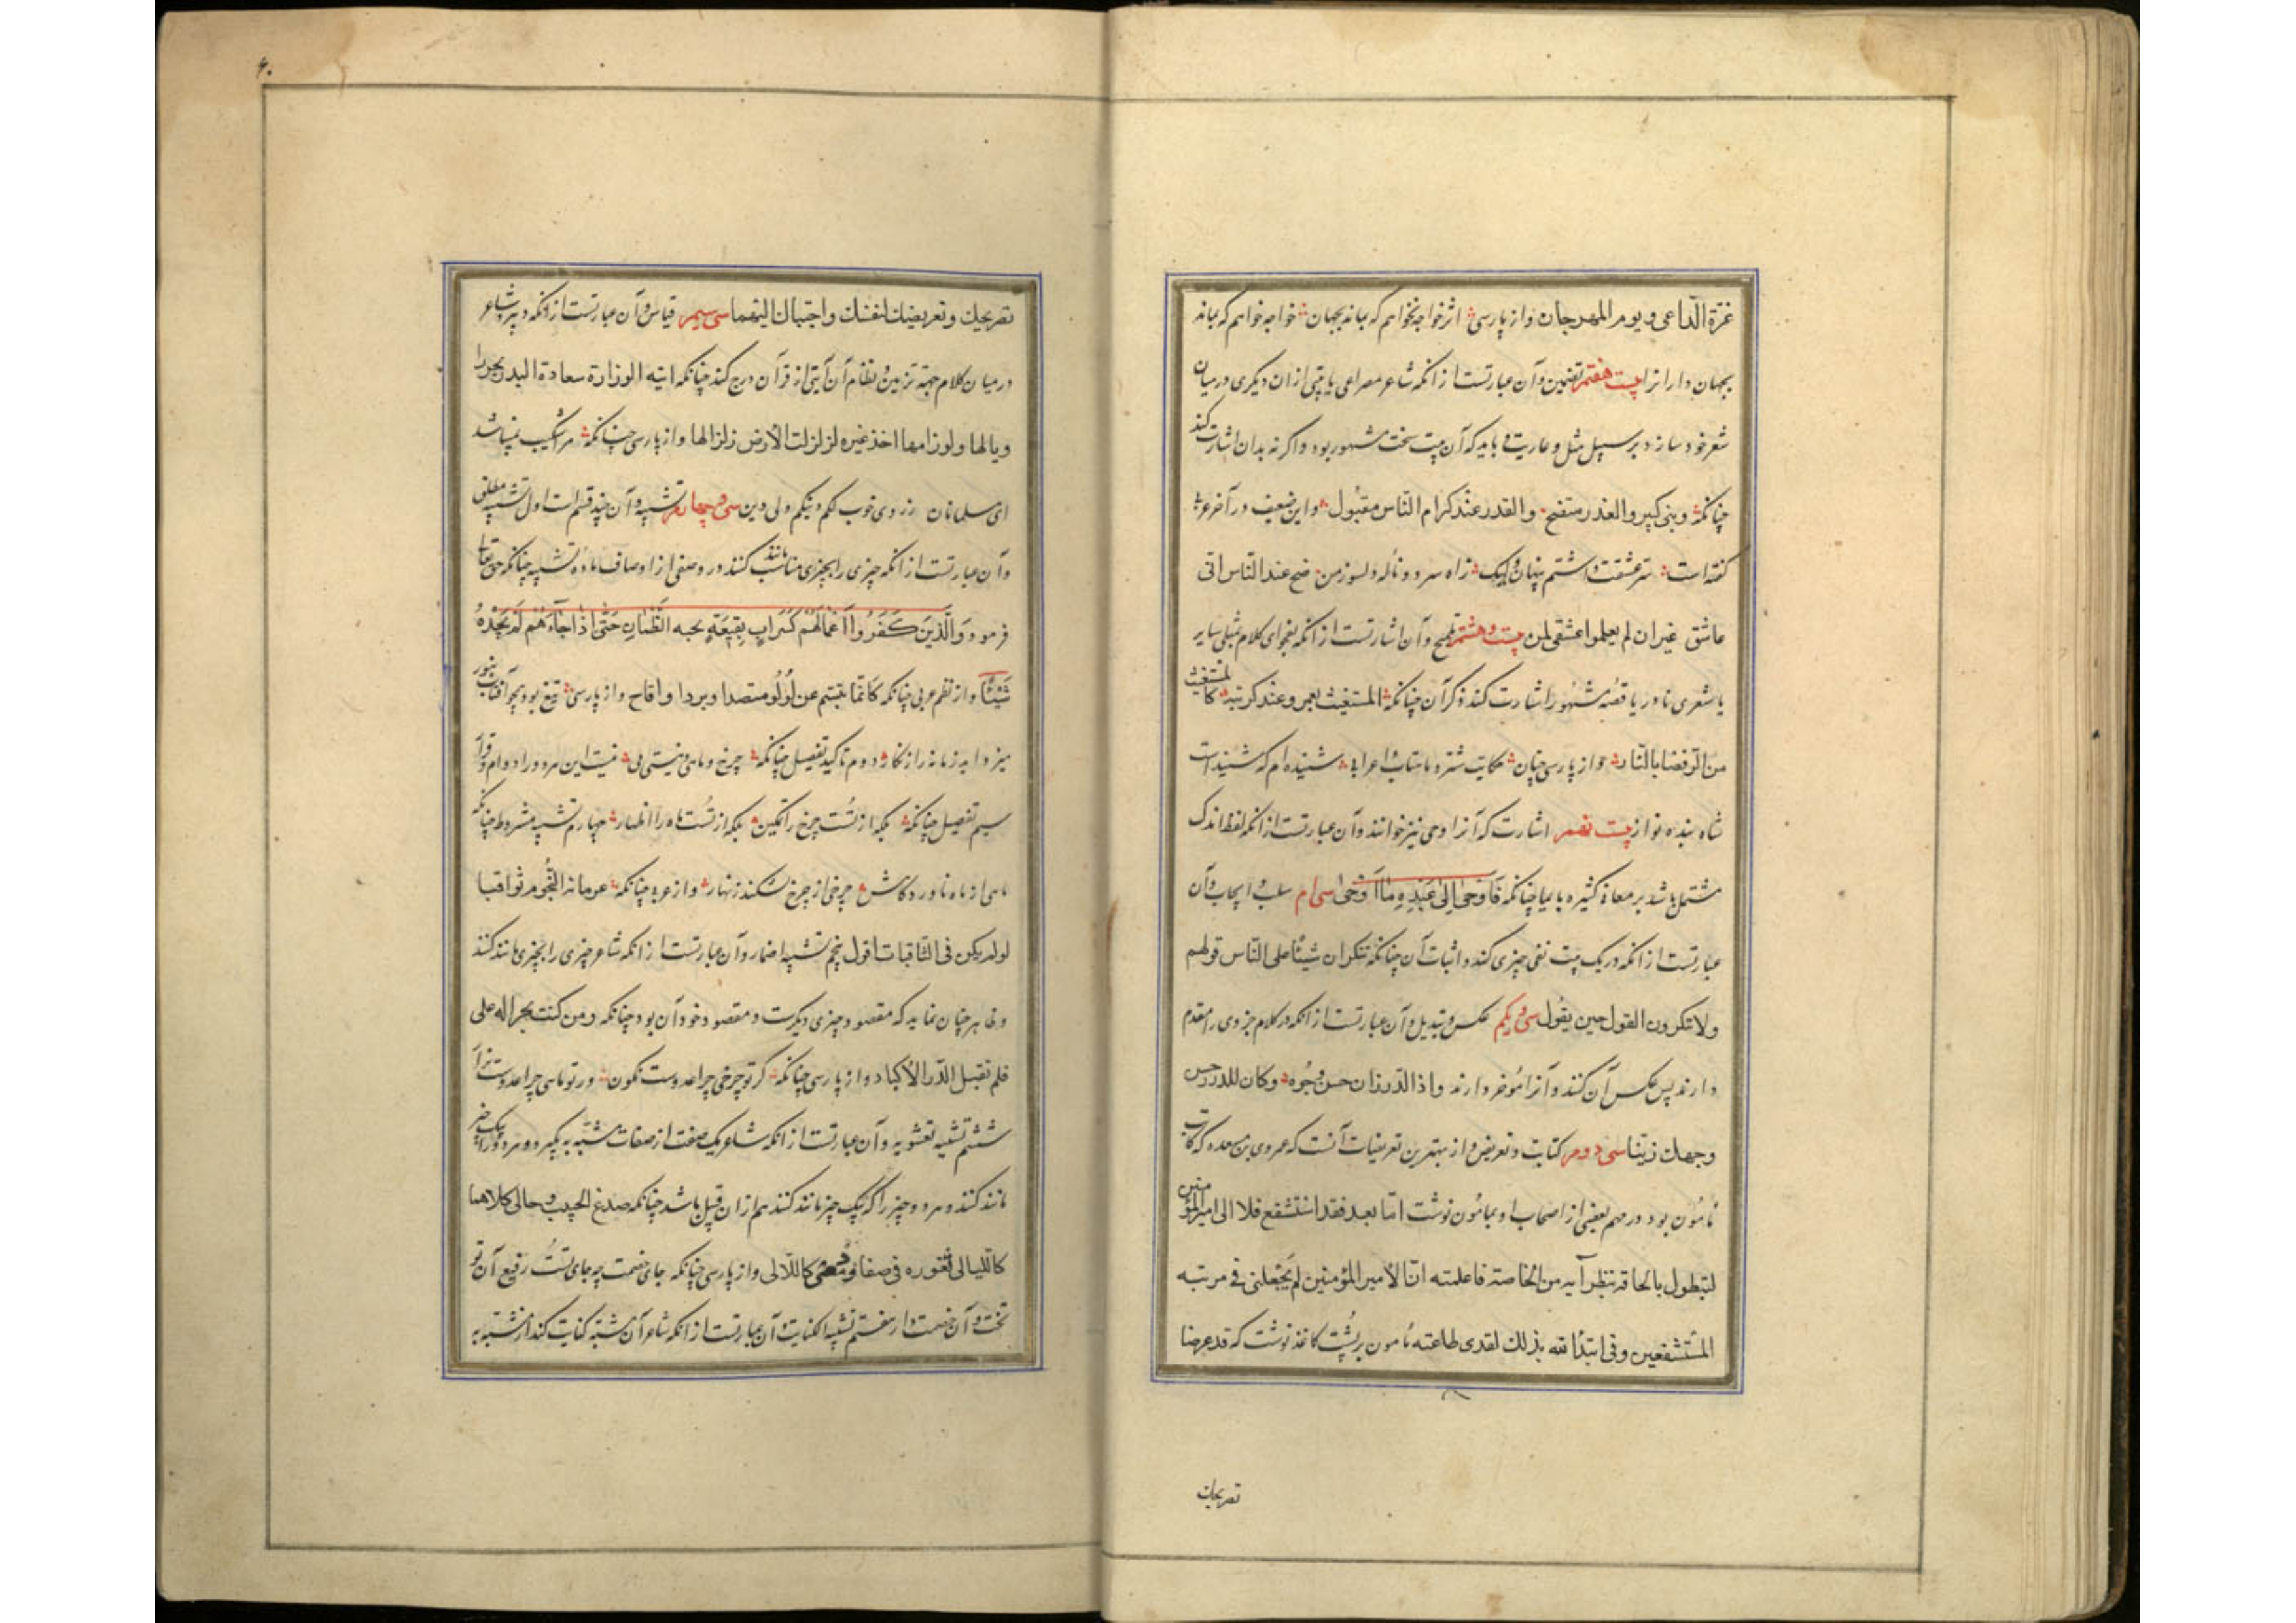 غرة الداعی و یوم المهرجان و از پارسی اثر خواجه نخواهم که بماند بجهان خواجه خواهم که بماند
بجهان دار اثرا بیست هفتم تضمین و آن عبارتست از انکه شاعر مصراعی یا بیتی از ان دیکری در میان
شعر خود سازد بر سبیل مثل و عاریت و باید که آن بیت سخت مشهور بود و اکر نه بدان اشارت کند
چنانکه والعذر متضح والقدر عند کرام الناس مقبول و این ضعیف در آخر
کفته است سر عشقت داشتم پنهان ولیک زاه سرد و ناله دلسوز من ضح عند الناس انی
عاشق غیر ان لم یعلموا عشقی لمن بیست و هشتم تلمیح و آن اشارتست از انکه بفحوای کلام مثلی سایر
یا شعری نادر یا قصه مشهور اشارت کند ذکر آن چنانکه المستغیث بعمرو عند کربته کالمستغیث
من الرمضا بالنار و از پارسی چنان حکایت شتر و ماهتاب و اعرابی شنیده ام که شنیداست
شاه بنده نواز بیست نهم اشارت که آنرا وحی نیز خوانند و آن عبارتست از انکه لفظ اندک
مشتمل باشد بر معانی کثیره بایما چنانکه فَاَوْحیٰ اِلیٰ عَبْدِهِ مٰا اَوْحیٰ سی ام سلب و ایجاب و آن
عبارتست از انکه در یک بیت نفی چیزی کند و اثبات آن چنانکه تنکر ان شیئا علی الناس قولهم
ولا تنکرون القول حین یقول سی و یکم عکس و تبدیل و آن عبارتست از انکه در کلام جزوی را مقدم
دارند پس عکس آن کنند و آنرا مؤخر دارند و اذا الدر زان حسن وجوه و کان للدر حسن
وجهك زینا سی دوم کنایت و تعریض و از بهترین تعریضات آنست که عمرو بن مسعده که کاتب
مأمون بود در مهم بعضی از اصحاب او بمأمون نوشت اما بعد فقد استشفع فلا الی امیر المؤمنین
لیتطول بالحاقه بنظرآیه من الخاصة فاعلمته ان الامیر المؤمنین لم یجعلنی فی مرتبه
المستشفعین و فی ابتدائه بذلك لتعدی طاعته مأمون بر پشت کاغذ نوشت که قد عرضنا
تصریحك
۶۰
تصریحك و تعریضك لنفسك و اجبناك الیهما سی سیم قیاس و آن عبارتست از انکه دبیر و شاعر
در میان کلام جهة تزیین و نظام آن آیتی از قرآن درج کند چنانکه ایته الوزارة سعادة البدر
ویالها ولوزامها اخذ غیره لزلزلت الارض زلزالها و از پارسی چنانکه مر اشکیب نمیباشد
ای مسلمانان ز روی خوب لکم دینکم ولی دین سی و چهارم تشبیه و آن چند قسم است اول تشبیه مطلق
و آن عبارتست از انکه چیزی را بچیزی مانند کنند در وصفی از اوصاف باداة تشبیه چنانکه حق تعالی
فرمود وَالَّذینَ کَفَرُوا اَعْمٰالُهُم کَسَرٰابٍ بِقیعَةٍ یحسبه الظَّمْآنُ حَتّی اِذا جٰاءَهُم لَم یَجِدْهُ
شَیْئًا و از نظم عربی چنانکه کانما یتبسم عن لؤلؤ منضدا و بردا و اقاح و از پارسی تیغ بود چو آفتاب بنور
میزداید زمانه را زنکار دوم تاکید تفصیل چنانکه چرخ و ماهی نیستی بی نیست این هر دو را دوام و قرار
سیم تفصیل چنانکه بلکه از تست چرخ را تمکین بلکه از تست ماه را اظهار چهارم تشبیه مشروط چنانکه
ماهی از ماه ناورد کاهش چرخی از چرخ نشکند زنهار و از عربی چنانکه عزماته النجوم ثواقبا
لو لم یکن فی الثاقبات افول پنجم تشبیه اضمار و آن عبارتست از انکه شاعر چیزی را بچیزی مانند کند
و ظاهر چنان نماید که مقصود چیزی دیکرست و مقصود خود آن بود چنانکه و من کنت بحرا له علی
فلم تقبل الدر الا کبادا و از پارسی چنانکه کر تو چرخی چرا عدوست نکون ور تو ماهی چرا عدوست نزار
ششم تشبیه تسویه و آن عبارتست از انکه شاعر یک صفت از صفات مشبه به بکیرد و هر دو را بیک چیز
مانند کنند و هر دو چیز را که بیک چیز مانند کنند هم از ان قبیل باشد چنانکه صدغ الحبیب و حالی کلاهما
کاللیالی ثغوره فی صفا و دمعی کاللآلی و از پارسی چنانکه جای خصمت چه جای تست رفیع آن تو
تخت و آن خصمت دار هفتم تشبیه الکنایت و آن عبارتست از انکه شاعر آن مشبه کنایت کند از مشبه به